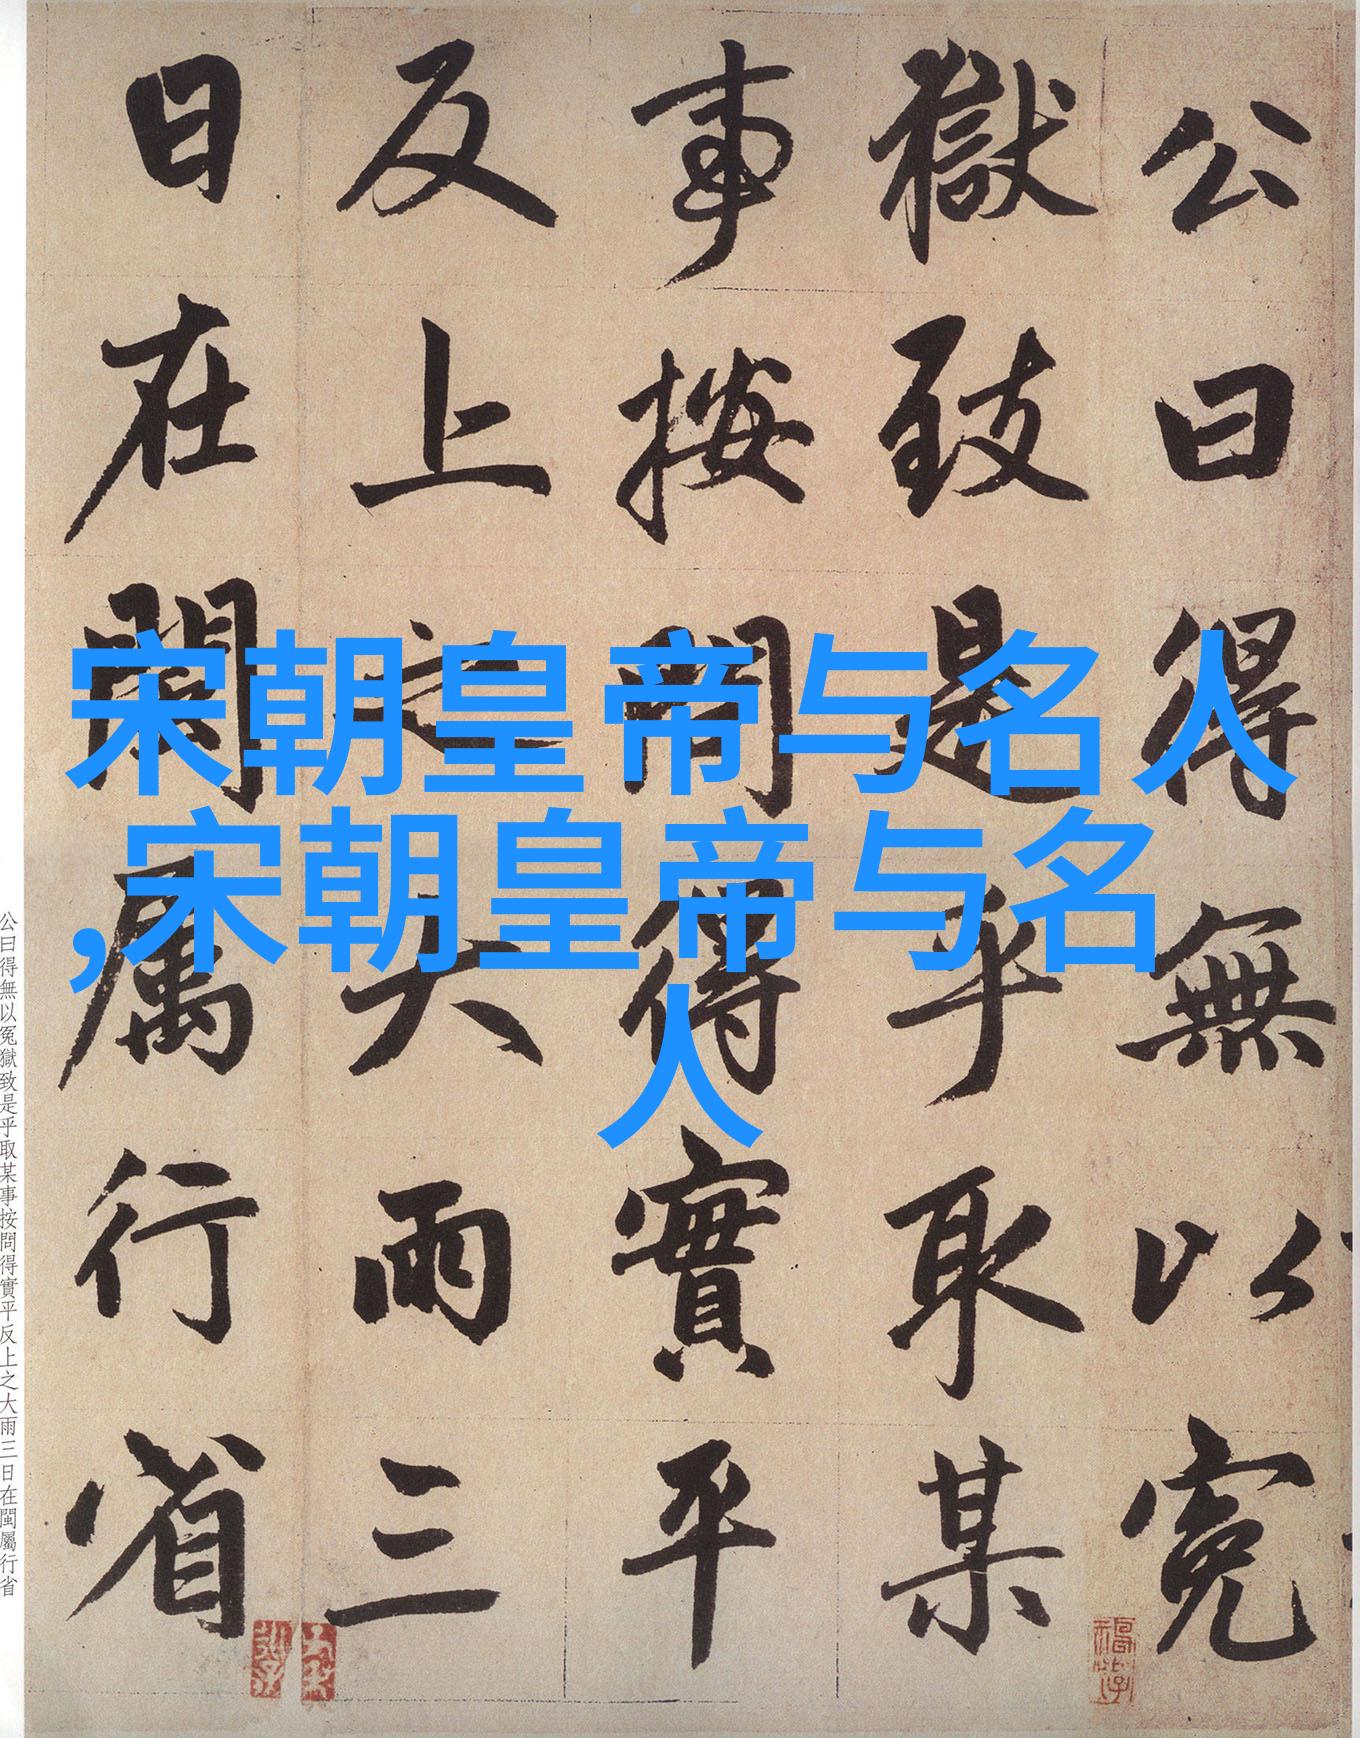 公曰得無以冤
獄致是乎取某
事按問得實平
反上之大雨三
日在閩屬行省
宋朝皇帝与名人
,宋朝皇帝与名
人
公曰得無以冤獄致是乎取某事按問得實平反上之大雨三日在閩屬行省